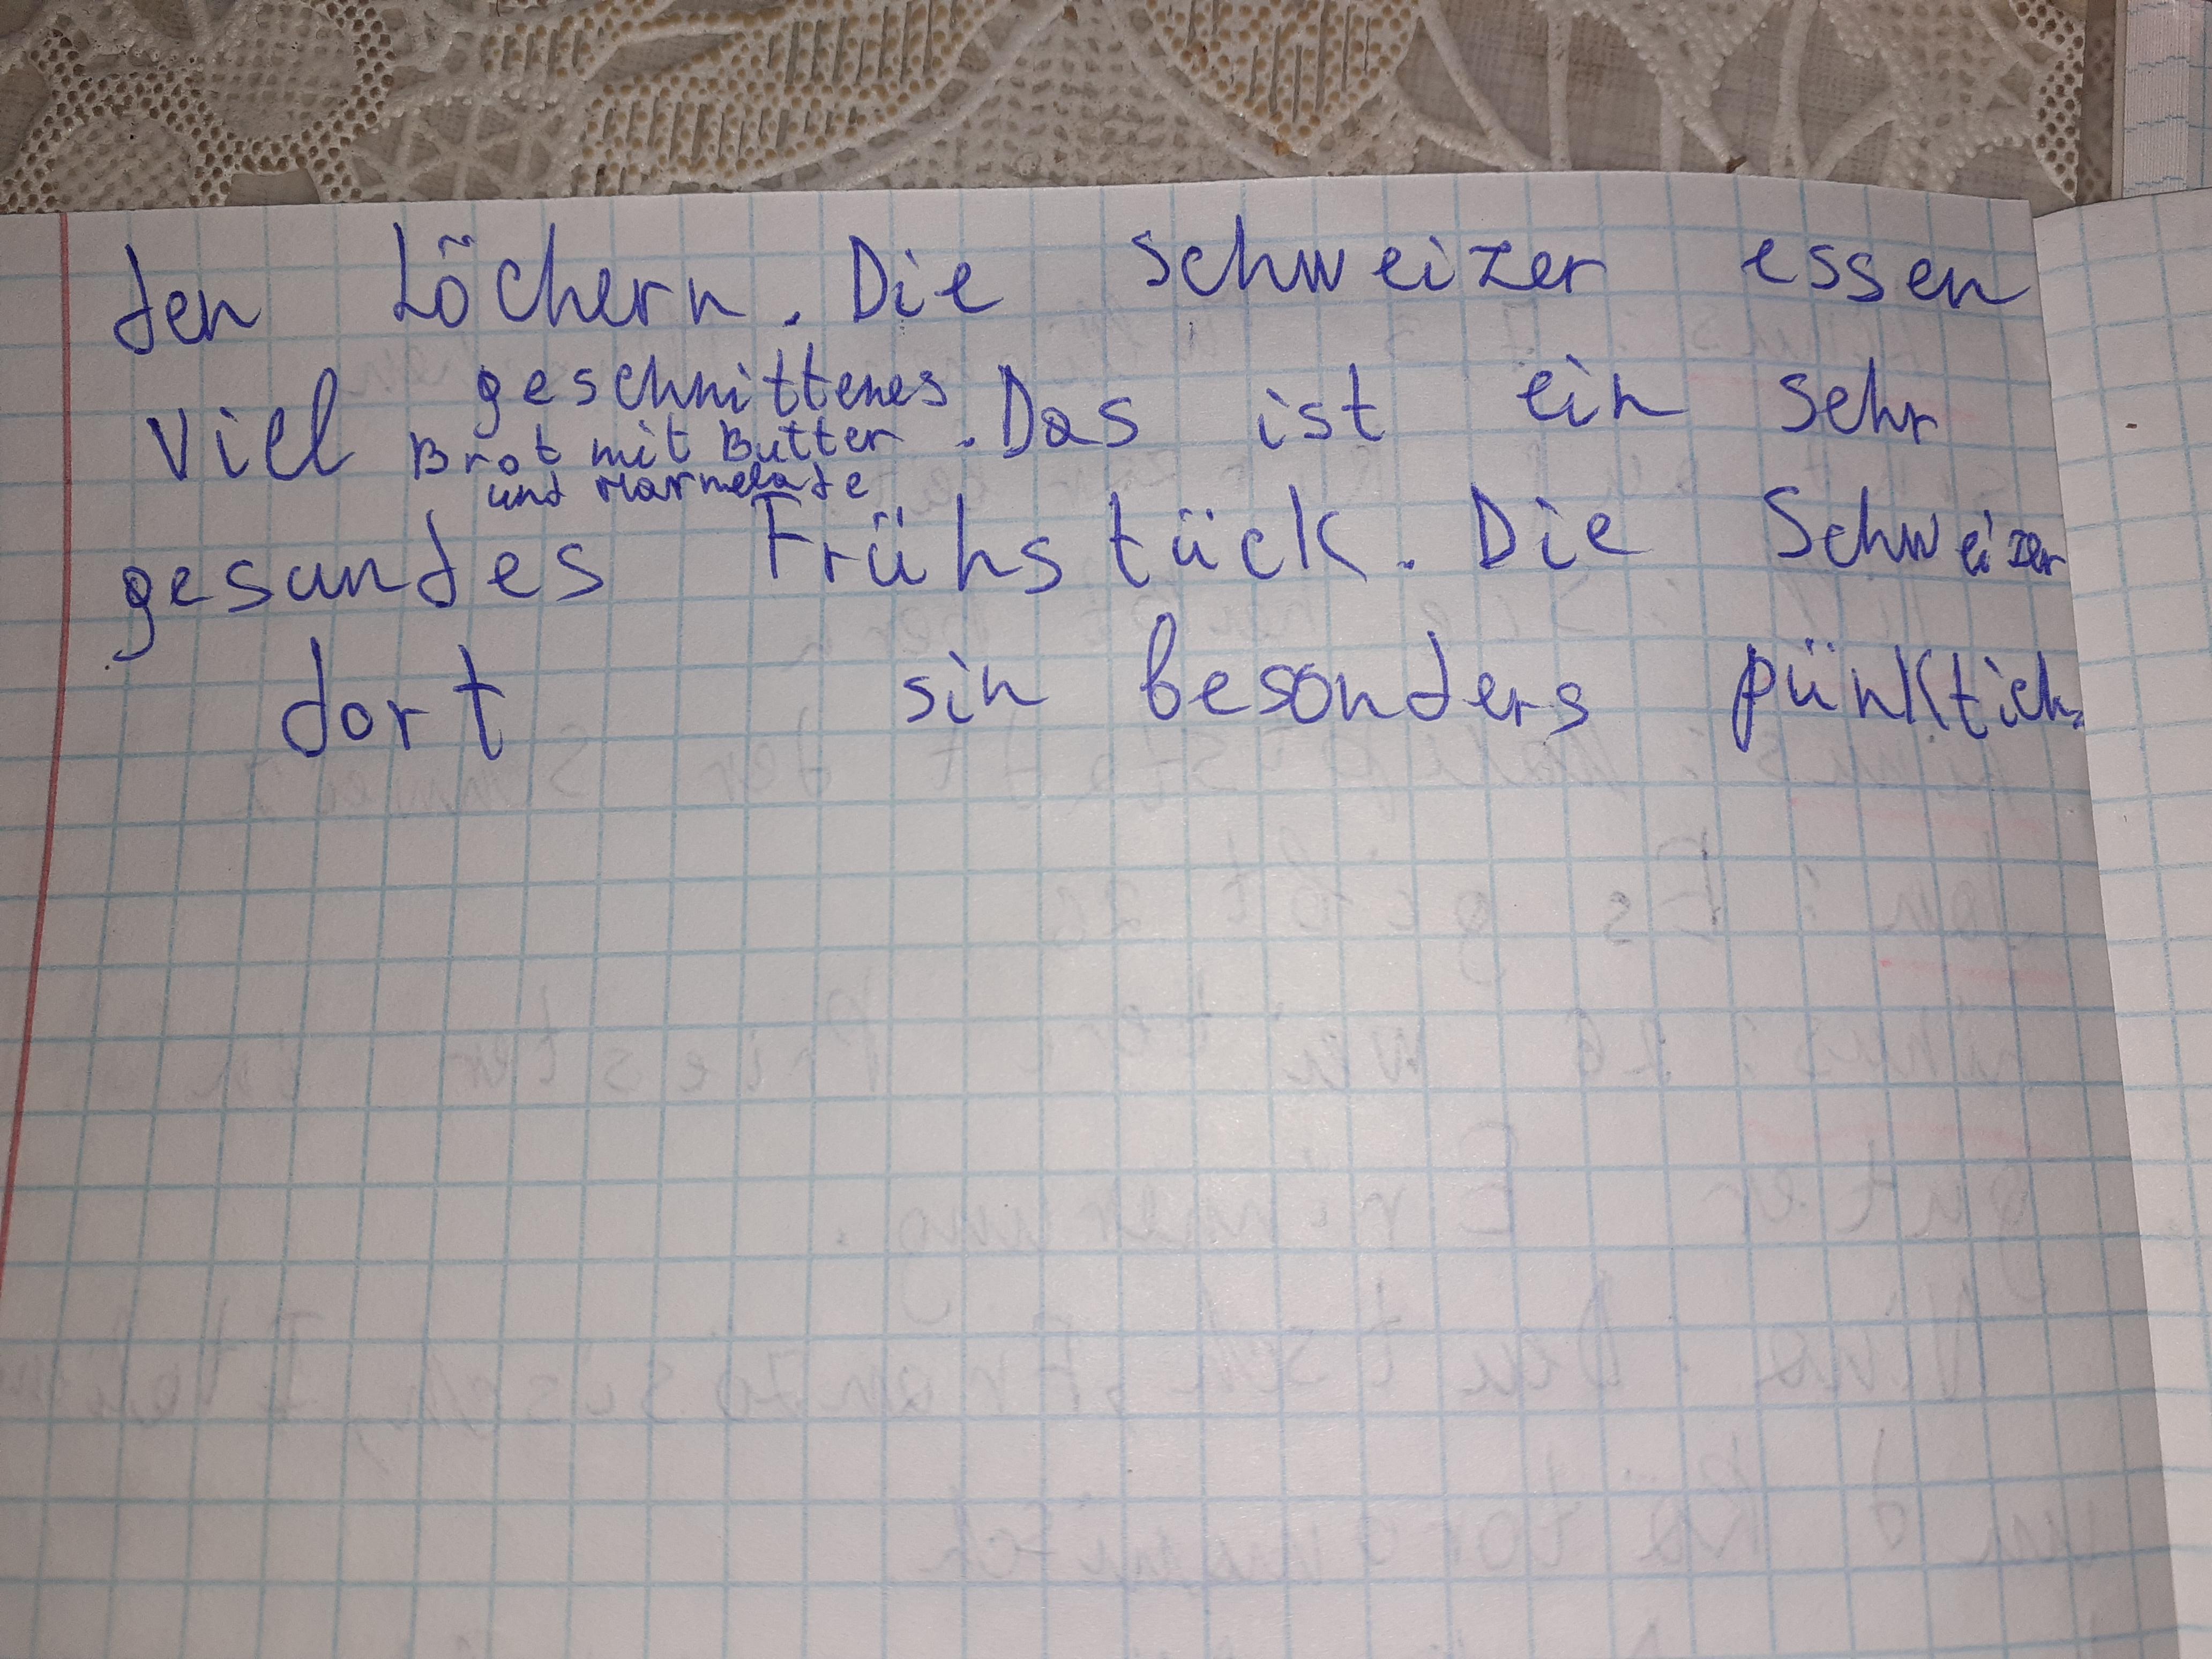 den Löchern. Die Schweizer essen
viel geschnittenes
Brot mit Butter
und Marmelade
. Das ist ein sehr
gesundes Frühstück. Die Schweizer
dort sin besonders pünktich.